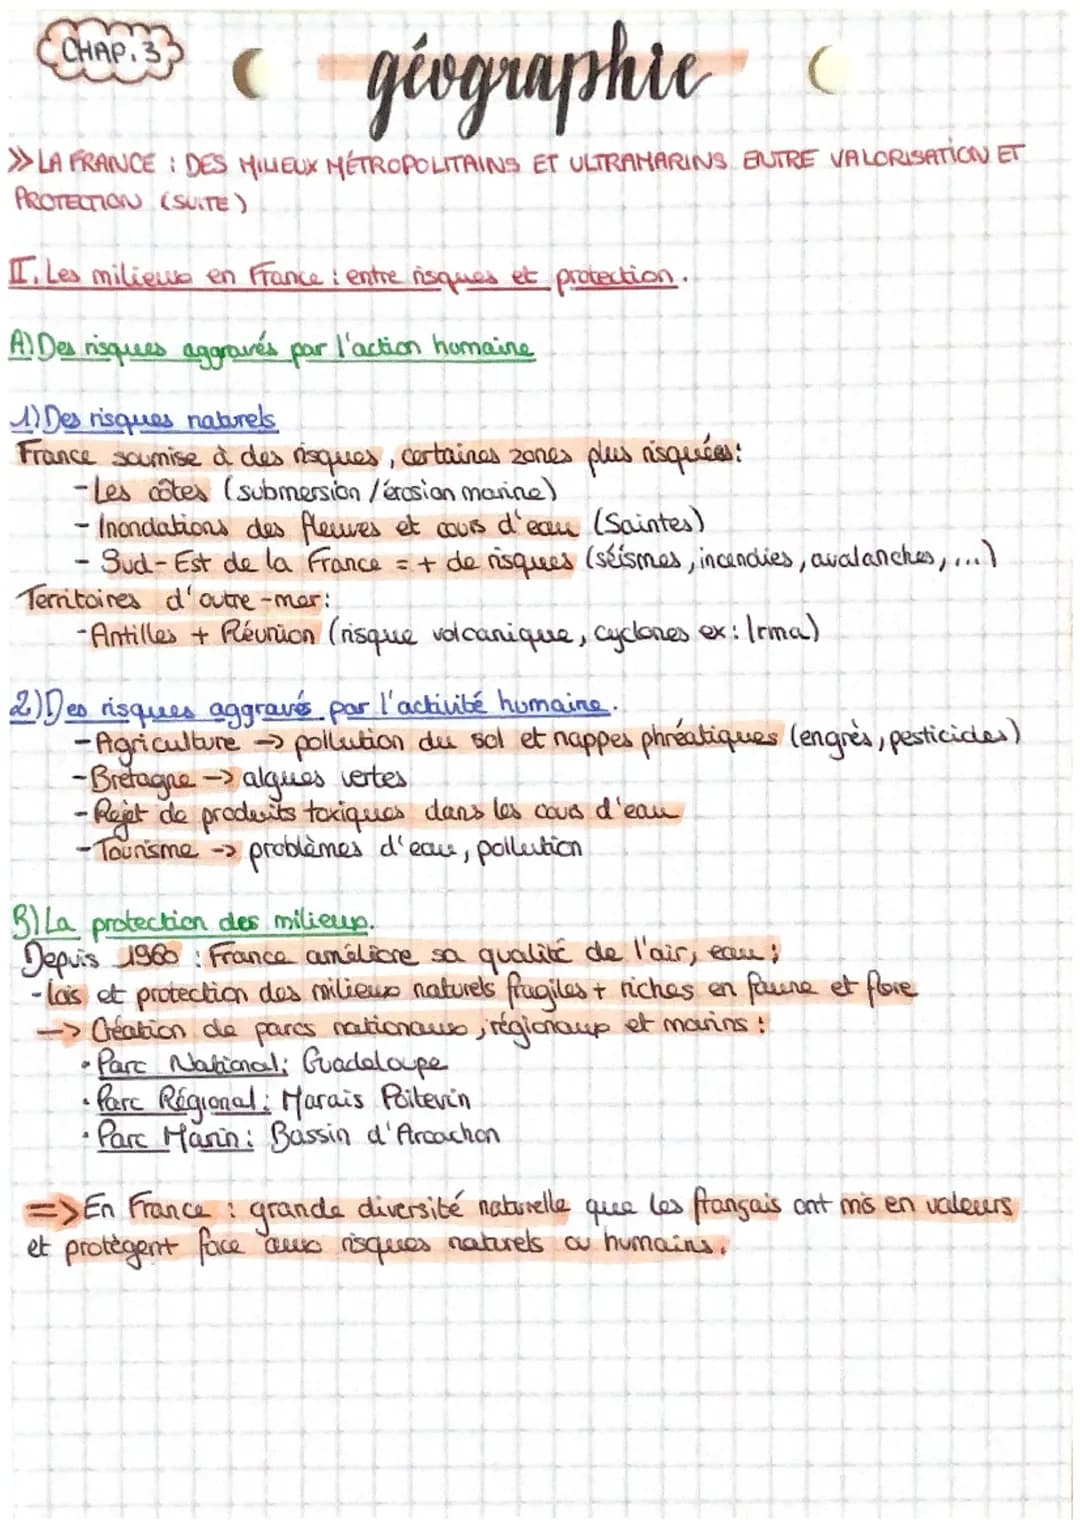 CHAP. 3
géographie
>> LA FRANCE : DES MILIEUX MÉTROPOLITAINS ET ULTRAMARINS ENTRE VALORISATION ET
PROTECTION (SUITE)
II. Les milieux en France : entre risques et protection.
A) Des risques aggravés par l'action humaine
1) Des risques naturels
France soumise à des risques, certaines zones plus risquées:
- Les côtes (submersion / érosion marine)
- Inondations des fleuves et cours d'eau (Saintes)
- Sud-Est de la France = + de risques (séismes, incendies, avalanches, ...)
Territoires d'outre-mer:
- Antilles + Réunion (risque volcanique, cyclones ex: Irma)
2) Des risques aggravés par l'activité humaine.
- Agriculture -> pollution du sol et nappes phréatiques (engrès, pesticides)
- Bretagne -> algues vertes
- Rejet de produits toxiques dans les cours d'eau
- Tourisme -> problèmes d'eau, pollution
B) La protection des milieux.
Depuis 1960 : France améliore sa qualité de l'air, eau ;
- lois et protection des milieux naturels fragiles + riches en faune et flore
-> Création de parcs nationaux, régionaux et marins :
• Parc National: Guadeloupe
• Parc Régional: Marais Poitevin
• Parc Marin: Bassin d'Arcachon
=> En France : grande diversité naturelle que les français ont mis en valeurs
et protègent face aux risques naturels ou humains.